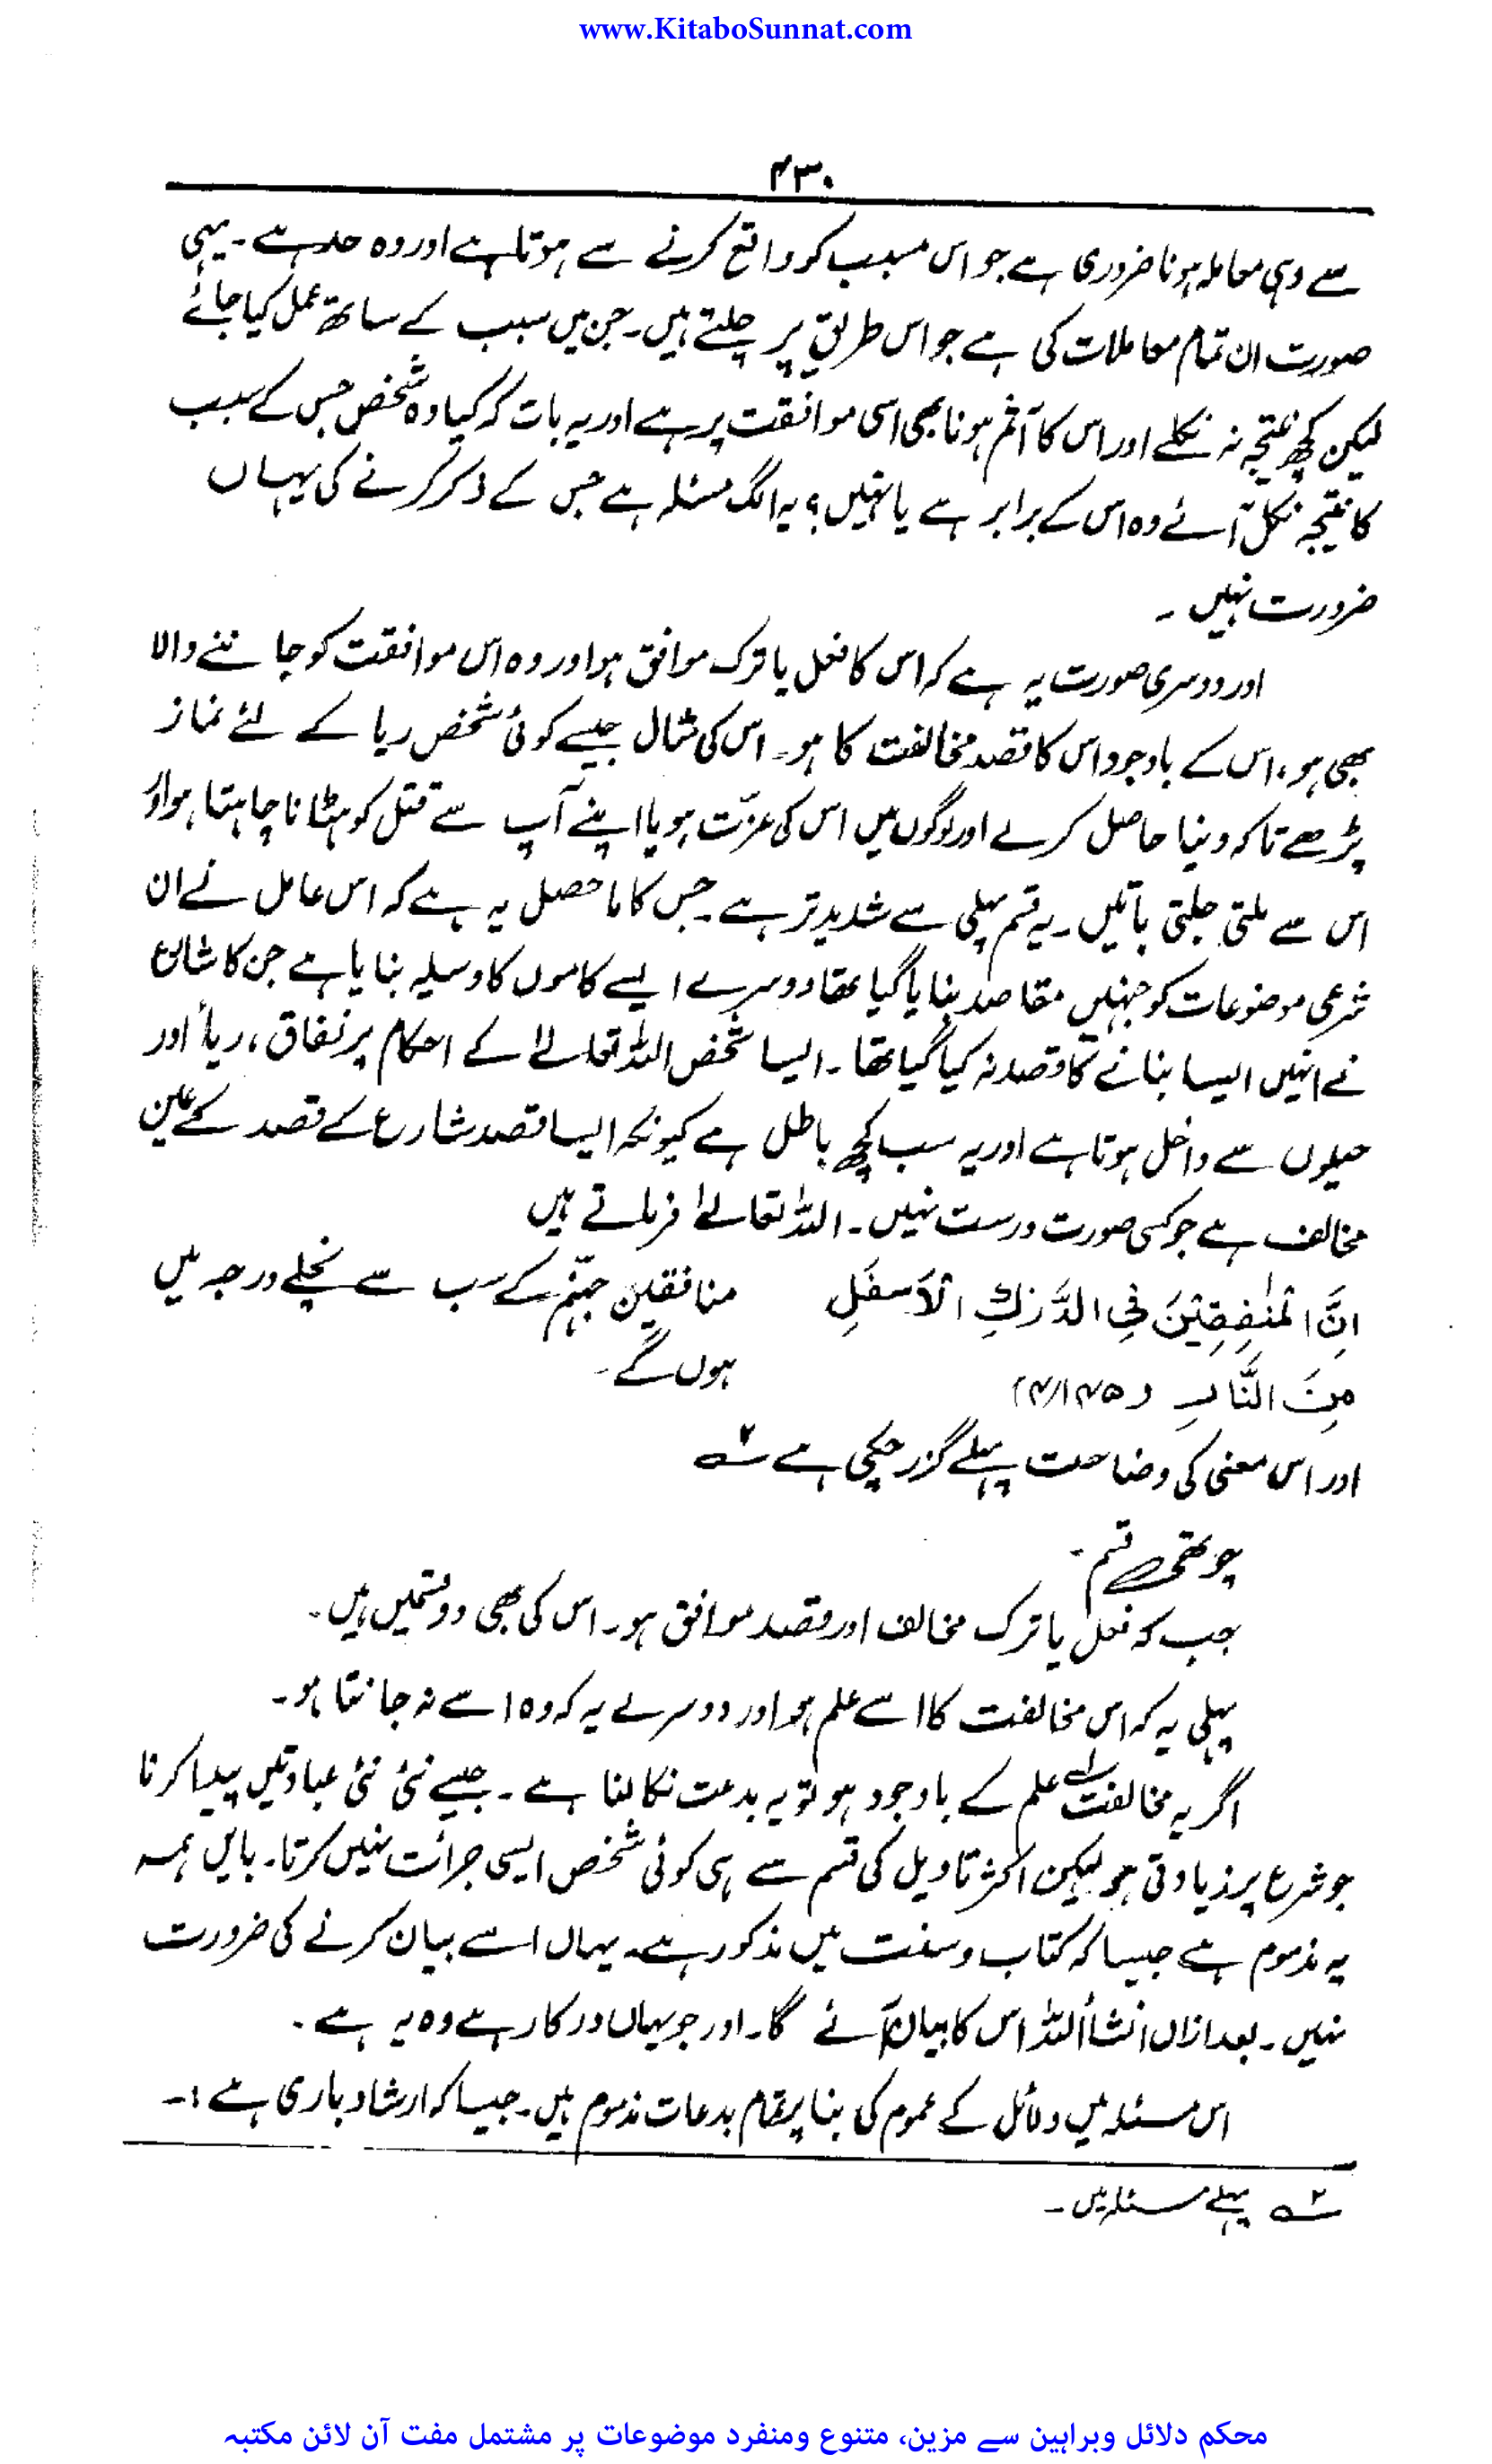 www.KitaboSunnat.com
۴۳۰
سے وہی معاملہ ہونا ضروری ہے جو اس مسبب کو واقع کرنے سے ہوتا ہے اور وہ حد ہے۔ یہی
صورت ان تمام معاملات کی ہے جو اس طریق پر چلتے ہیں۔ جن میں سبب کے ساتھ عمل کیا جائے
لیکن کچھ نتیجہ نہ نکلے اور اس کا آثم ہونا بھی اسی موافقت پر ہے اور یہ بات کہ کیا وہ شخص جس کے سبب
کا نتیجہ نکل آئے وہ اس کے برابر ہے یا نہیں؟ یہ الگ مسئلہ ہے جس کے ذکر کرنے کی یہاں
ضرورت نہیں ۔
اور دوسری صورت یہ ہے کہ اس کا فعل یا ترک موافق ہو اور وہ اس موافقت کو جاننے والا
بھی ہو، اس کے باوجود اس کا قصد مخالفت کا ہو۔ اس کی مثال جیسے کوئی شخص ریا کے لئے نماز
پڑھے تاکہ دنیا حاصل کرے اور لوگوں میں اس کی عزّت ہو یا اپنے آپ سے قتل کو ہٹانا چاہتا ہو اور
اس سے ملتی جلتی باتیں ۔ یہ قسم پہلی سے شدید تر ہے۔ جس کا ماحصل یہ ہے کہ اس عامل نے ان
شرعی موضوعات کو جنہیں مقاصد بنایا گیا تھا دوسرے ایسے کاموں کا وسیلہ بنایا ہے جن کا شارع
نے انہیں ایسا بنانے کا قصد نہ کیا گیا تھا ۔ ایسا شخص اللہ تعالےٰ کے احکام پر نفاق، ریأ اور
حیلوں سے داخل ہوتا ہے اور یہ سب کچھ باطل ہے کیونکہ ایسا قصد شارع کے قصد کے عین
مخالف ہے جو کسی صورت درست نہیں۔ اللہ تعالےٰ فرماتے ہیں
اِنَّ الْمُنٰفِقِیْنَ فِی الدَّرْكِ الْاَسْفَلِ منافقین جہنّم کے سب سے نچلے درجہ میں
مِنَ النَّارِ (۴/۱۴۵) ہوں گے۔
اور اس معنی کی وضاحت پہلے گزر چکی ہے ۲ـہ
چوتھی قسم ۔
جب کہ فعل یا ترک مخالف اور قصد موافق ہو۔ اس کی بھی دو قسمیں ہیں۔
پہلی یہ کہ اس مخالفت کا اسے علم ہو اور دوسرے یہ کہ وہ اسے نہ جانتا ہو۔
اگر یہ مخالفت علم کے باوجود ہو تو یہ بدعت نکالنا ہے ۔ جیسے نئی نئی عبادتیں پیدا کرنا
جو شرع پر زیادتی ہو لیکن اکثر تاویل کی قسم سے ہی کوئی شخص ایسی جرأت نہیں کرتا۔ بایں ہمہ
یہ مذموم ہے جیسا کہ کتاب و سنت میں مذکور ہے۔ یہاں اسے بیان کرنے کی ضرورت
نہیں ۔ بعد ازاں انشأ اللہ اس کا بیان آئے گا۔ اور جو یہاں درکار ہے وہ یہ ہے ۔
اس مسئلہ میں دلائل کے عموم کی بنا پر تمام بدعات مذموم ہیں۔ جیسا کہ ارشاد باری ہے :۔
۲ـہ پہلے مسئلہ میں ۔
محکم دلائل وبراہین سے مزین، متنوع ومنفرد موضوعات پر مشتمل مفت آن لائن مکتبہ